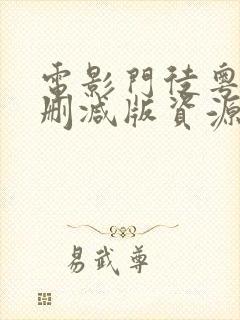 電影門徒粵
刪減版資源
易武尊